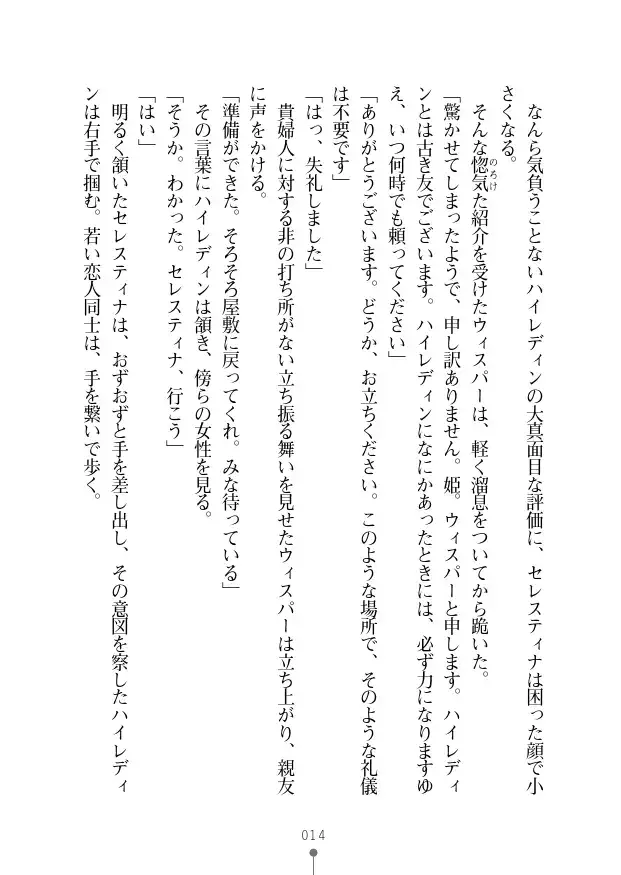 なんら気負うことないハイレディンの大真面目な評価に、セレスティナは困った顔で小
さくなる。
そんな惚気た紹介を受けたウィスパーは、軽く溜息をついてから跪いた。
のろけ
「驚かせてしまったようで、申し訳ありません。姫。ウィスパーと申します。ハイレディ
ンとは古き友でございます。ハイレディンになにかあったときには、必ず力になりますゆ
え、いつ何時でも頼ってください」
「ありがとうございます。どうか、お立ちください。このような場所で、そのような礼儀
は不要です」
「はっ、失礼しました」
貴婦人に対する非の打ち所がない立ち振る舞いを見せたウィスパーは立ち上がり、親友
に声をかける。
「準備ができた。そろそろ屋敷に戻ってくれ。みな待っている」
その言葉にハイレディンは頷き、傍らの女性を見る。
「そうか。わかった。セレスティナ、行こう」
「はい」
明るく頷いたセレスティナは、おずおずと手を差し出し、その意図を察したハイレディ
ンは右手で掴む。若い恋人同士は、手を繋いで歩く。
014